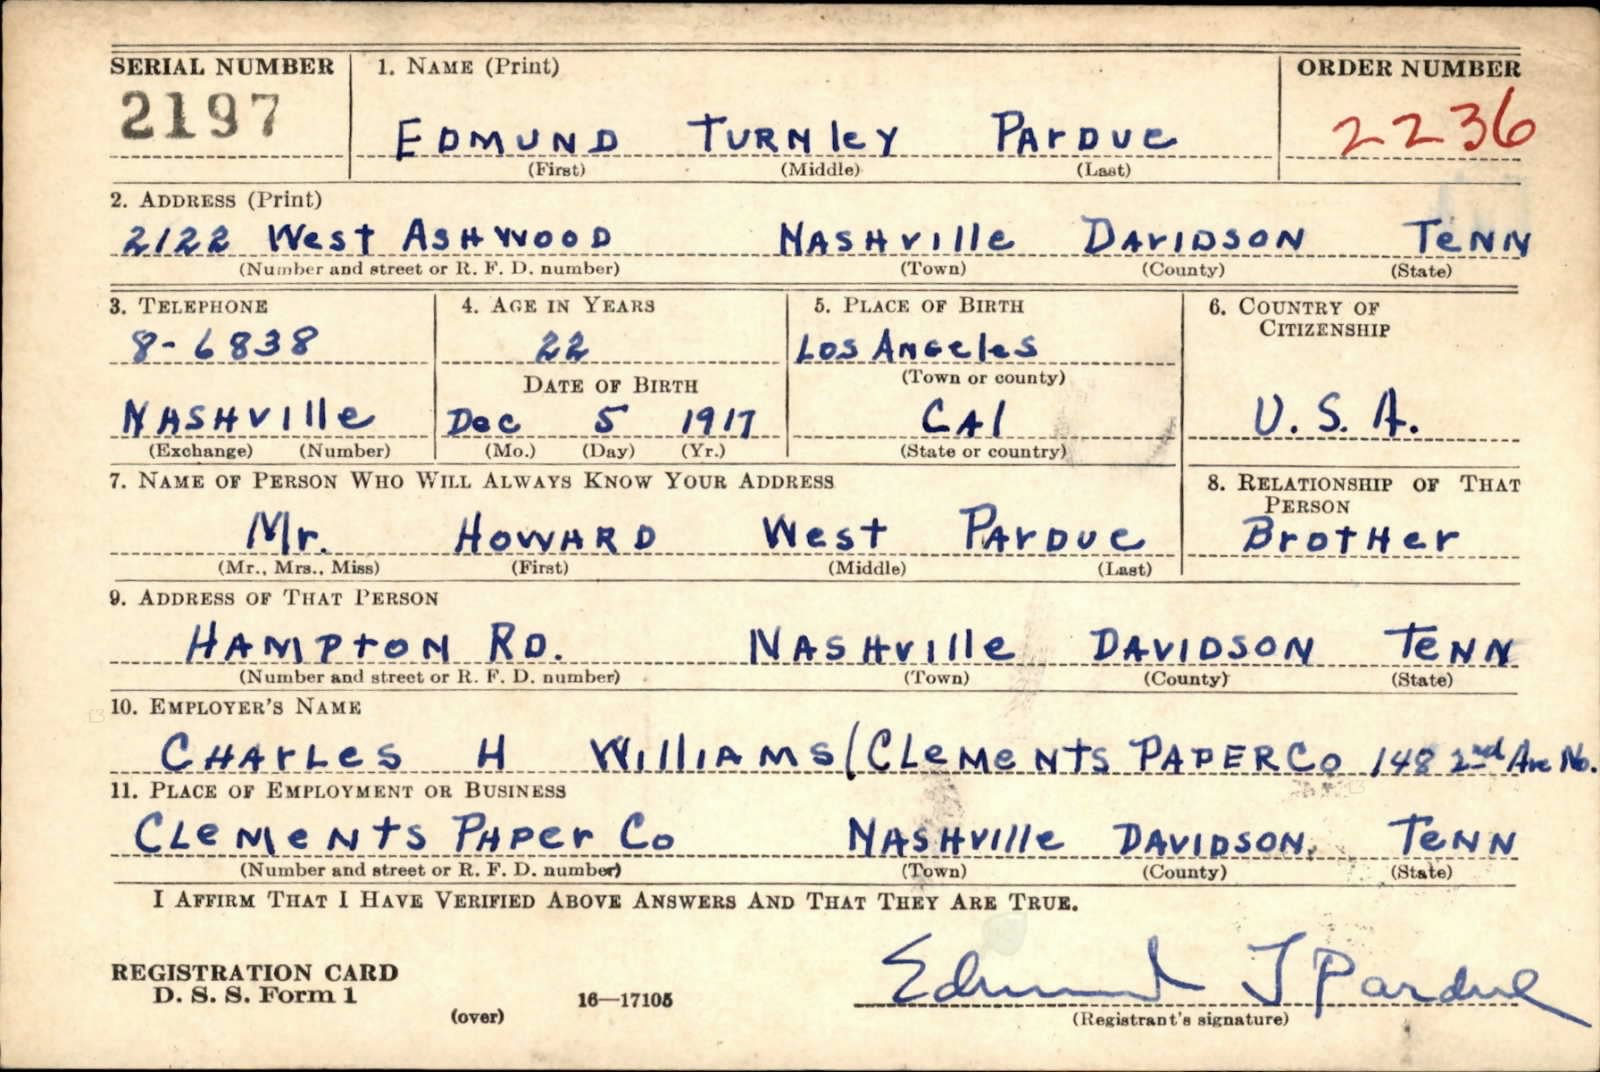 SERIAL NUMBER 1. NAME (Print) ORDER NUMBER
2197 EDMUND TURNLEY PARDUE 2236
(First) (Middle) (Last)
2. ADDRESS (Print)
2122 West ASHWOOD NASHville DAVIDSON TeNN
(Number and street or R. F. D. number) (Town) (County) (State)
3. TELEPHONE 4. AGE IN YEARS 5. PLACE OF BIRTH 6. COUNTRY OF CITIZENSHIP
8-6838 22 Los Angeles
DATE OF BIRTH (Town or county)
NASHville Dec 5 1917 CAl U. S. A.
(Exchange) (Number) (Mo.) (Day) (Yr.) (State or country)
7. NAME OF PERSON WHO WILL ALWAYS KNOW YOUR ADDRESS 8. RELATIONSHIP OF THAT PERSON
Mr. HOWARD West PArDUe BrotHer
(Mr., Mrs., Miss) (First) (Middle) (Last)
9. ADDRESS OF THAT PERSON
HAMPtON RD. NASHville DAVIDSON TeNN
(Number and street or R. F. D. number) (Town) (County) (State)
10. EMPLOYER'S NAME
CHArLes H WilliAMs (CLeMeNts PAPER Co 148 2nd Ave No.
11. PLACE OF EMPLOYMENT OR BUSINESS
CLeMeNts PAPer Co NASHville DAVIDSON. TeNN
(Number and street or R. F. D. number) (Town) (County) (State)
I AFFIRM THAT I HAVE VERIFIED ABOVE ANSWERS AND THAT THEY ARE TRUE.
REGISTRATION CARD
D. S. S. Form 1 16—17105 Edmund T Pardue
(over) (Registrant's signature)